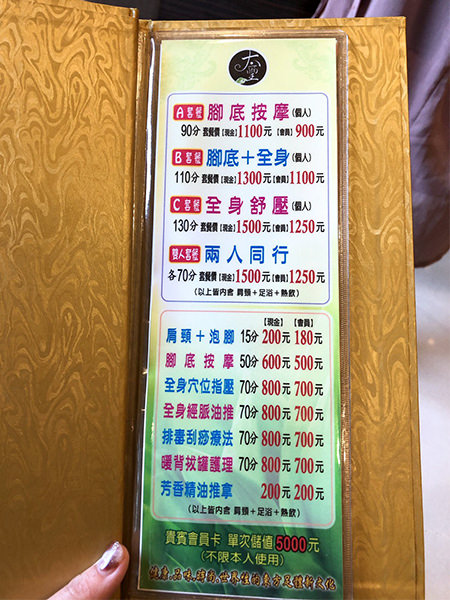 A 客餐 腳底按摩(個人)
90分 套餐價【現金】1100元【會員】900元
B 客餐 腳底＋全身(個人)
110分 套餐價【現金】1300元【會員】1100元
C 客餐 全身舒壓(個人)
130分 套餐價【現金】1500元【會員】1250元
雙人客餐 兩人同行
各70分 套餐價【現金】1500元【會員】1250元
(以上皆內含 肩頸＋足浴＋熱飲)
【現金】【會員】
肩頸＋泡腳 15分 200元 180元
腳底按摩 50分 600元 500元
全身穴位指壓 70分 800元 700元
全身經脈油推 70分 800元 700元
排毒刮痧療法 70分 800元 700元
暖背拔罐護理 70分 800元 700元
芳香精油推拿 200元 200元
(以上皆內含 肩頸＋足浴＋熱飲)
貴賓會員卡 單次儲值5000元
(不限本人使用)
健康.品味.時尚.世界性的東方足體新文化